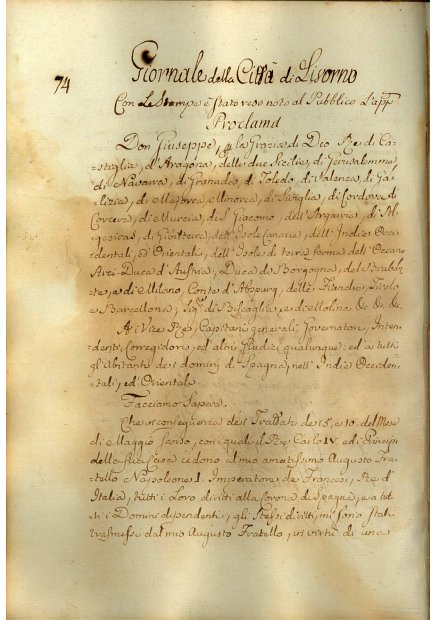 Giornale della Città di Livorno
74
Con Le Stampe è stato reso noto al Pubblico L'app.
Proclama
Don Giuseppe, p la Grazia di Dio Re di Ca-
stiglia, d'Aragona, delle due Sicilie, di Gerusalemme,
di Navarra, di Granada, di Toledo, di Valenza, di Ga-
lizia, di Majorca, Minorca, di Siviglia, di Cordova, di
Corsica, di Murcia, di S. Giacomo, dell' Algarvia, di Al-
gesiras, di Gibilterra, dell' Isole Canarie, dell' Indie Occi-
dentali, ed Orientali, dell' Isole di terra ferma dell' Oceano
Arci-Duca d'Austria, Duca di Borgogna, del Braban-
te, e di Milano, Conte d'Absburg, delle Fiandre, Tirolo
e Barcellona, Sigr. di Biscaglia, e di Molina &c. &c. &c.
Ai Vice Re, Capitani generali, Governatori, Inten-
denti, Corregidori, ed altri Giudici qualunque: ed a tutti
gli Abitanti dei domini di Spagna, nell' Indie Occiden-
tali, ed Orientale
Facciamo Sapere.
Che in conseguenza dei Trattati de i 5, e 10. del Mese
di Maggio scorso, con i quali il Re Carlo IV. ed i Principi
della sua Casa cedono al mio amatissimo Augusto Fra-
tello Napoleone I. Imperatore de Francesi, Re d'
Italia, tutti i Loro diritti alla Corona di Spagna, e a tut-
ti i Domini dipendenti, gli stessi diritti, mi sono stati
trasmessi dal mio Augusto Fratello, in virtù di una